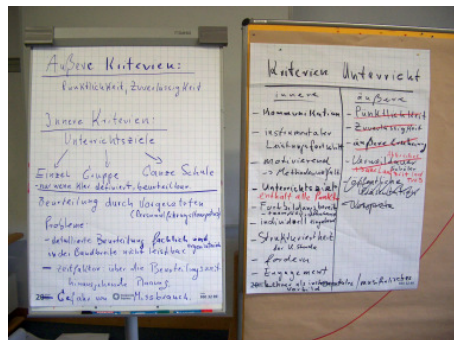 Äußere Kriterien:
Pünktlichkeit, Zuverlässigkeit
Innere Kriterien:
Unterrichtsziele
Einzel Gruppe Ganze Schule
- nur wenn klar definiert, beurteilbar
Beurteilung durch Vorgesetzten
Probleme:
- detaillierte Beurteilung fachlich und
in der Bandbreite nicht leistbar
- Zeitfaktor über die
hinausgehende Planung.
- Gefahr von Missbrauch.
Kriterien Unterricht
innere
- Kommunikation
- instrumentaler
Leistungsfortschritt
- motivierend
→ Methodenvielfalt
- Unterrichtsziele
enthält alle Punkte
- Fortbildung
individuell eingehend
- Strukturiertheit
der U. Stunde
- fordern
- Engagement
- Lehrer als instrumentales / musikalisches
Vorbild
äußere
- Pünktlichkeit
- Zuverlässigkeit
- äußere Erscheinung
- Vorspiele
- öffentliche